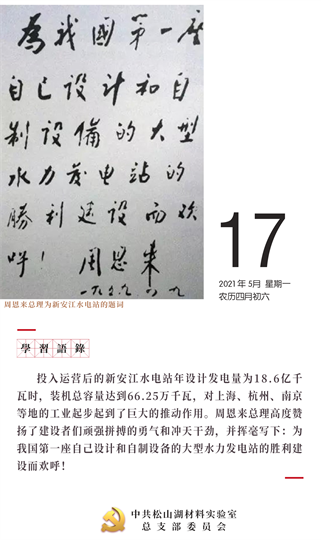 為我國第一座
自己设计和自
制设備的大型
水力发电站的
勝利建设而欢
呼！ 周恩来
一九五九、四、九
周恩来总理为新安江水电站的题词
17
2021年 5月 星期一
农历四月初六
學習語錄
投入运营后的新安江水电站年设计发电量为18.6亿千
瓦时，装机总容量达到66.25万千瓦，对上海、杭州、南京
等地的工业起步起到了巨大的推动作用。周恩来总理高度赞
扬了建设者们顽强拼搏的勇气和冲天干劲，并挥毫写下：为
我国第一座自己设计和自制设备的大型水力发电站的胜利建
设而欢呼！
中共松山湖材料实验室
总支部委员会